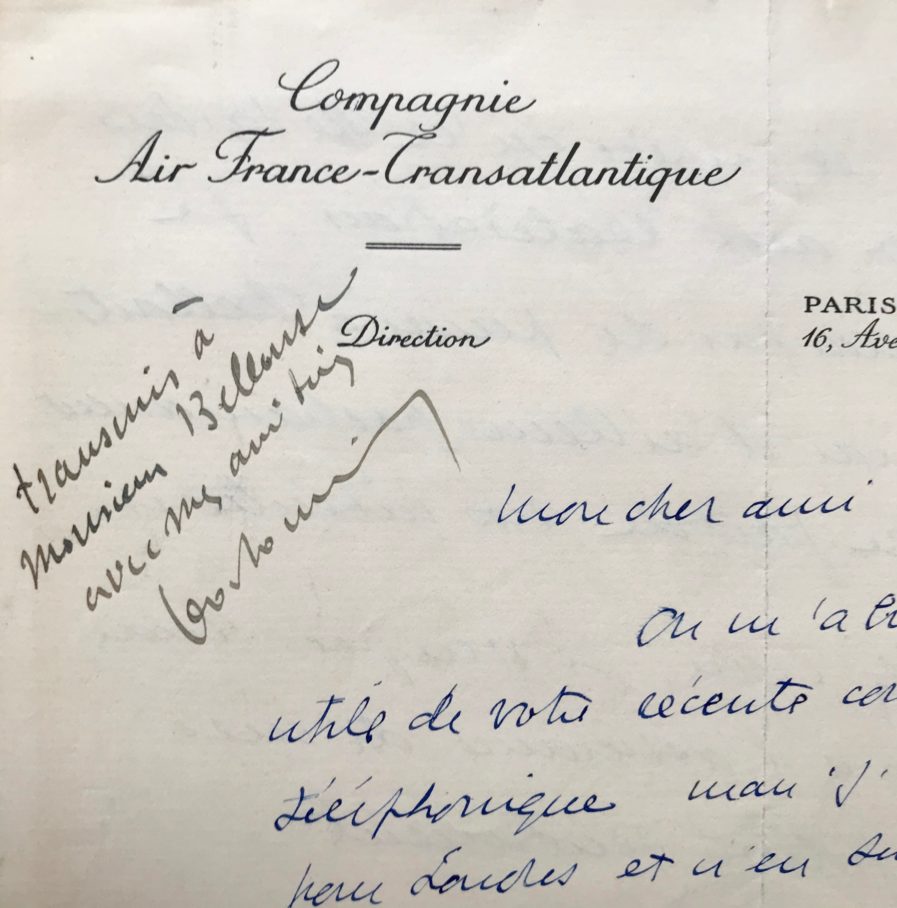 Compagnie
Air France-Transatlantique
Direction
PARIS
16, Ave
transmis à
Monsieur
avec mes amitiés
Mon cher ami
On m'a
utile de votre récente
téléphonique mais j'
pour Londres et n'en